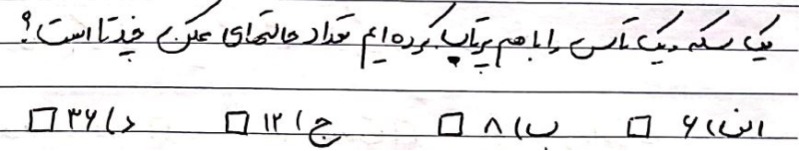 یک سکه و یک تاس را با هم پرتاب کرده ایم تعداد حالتهای ممکن چندتا است؟
الف) ۶ □ ب) ۸ □ ج) ۱۲ □ د) ۳۶ □